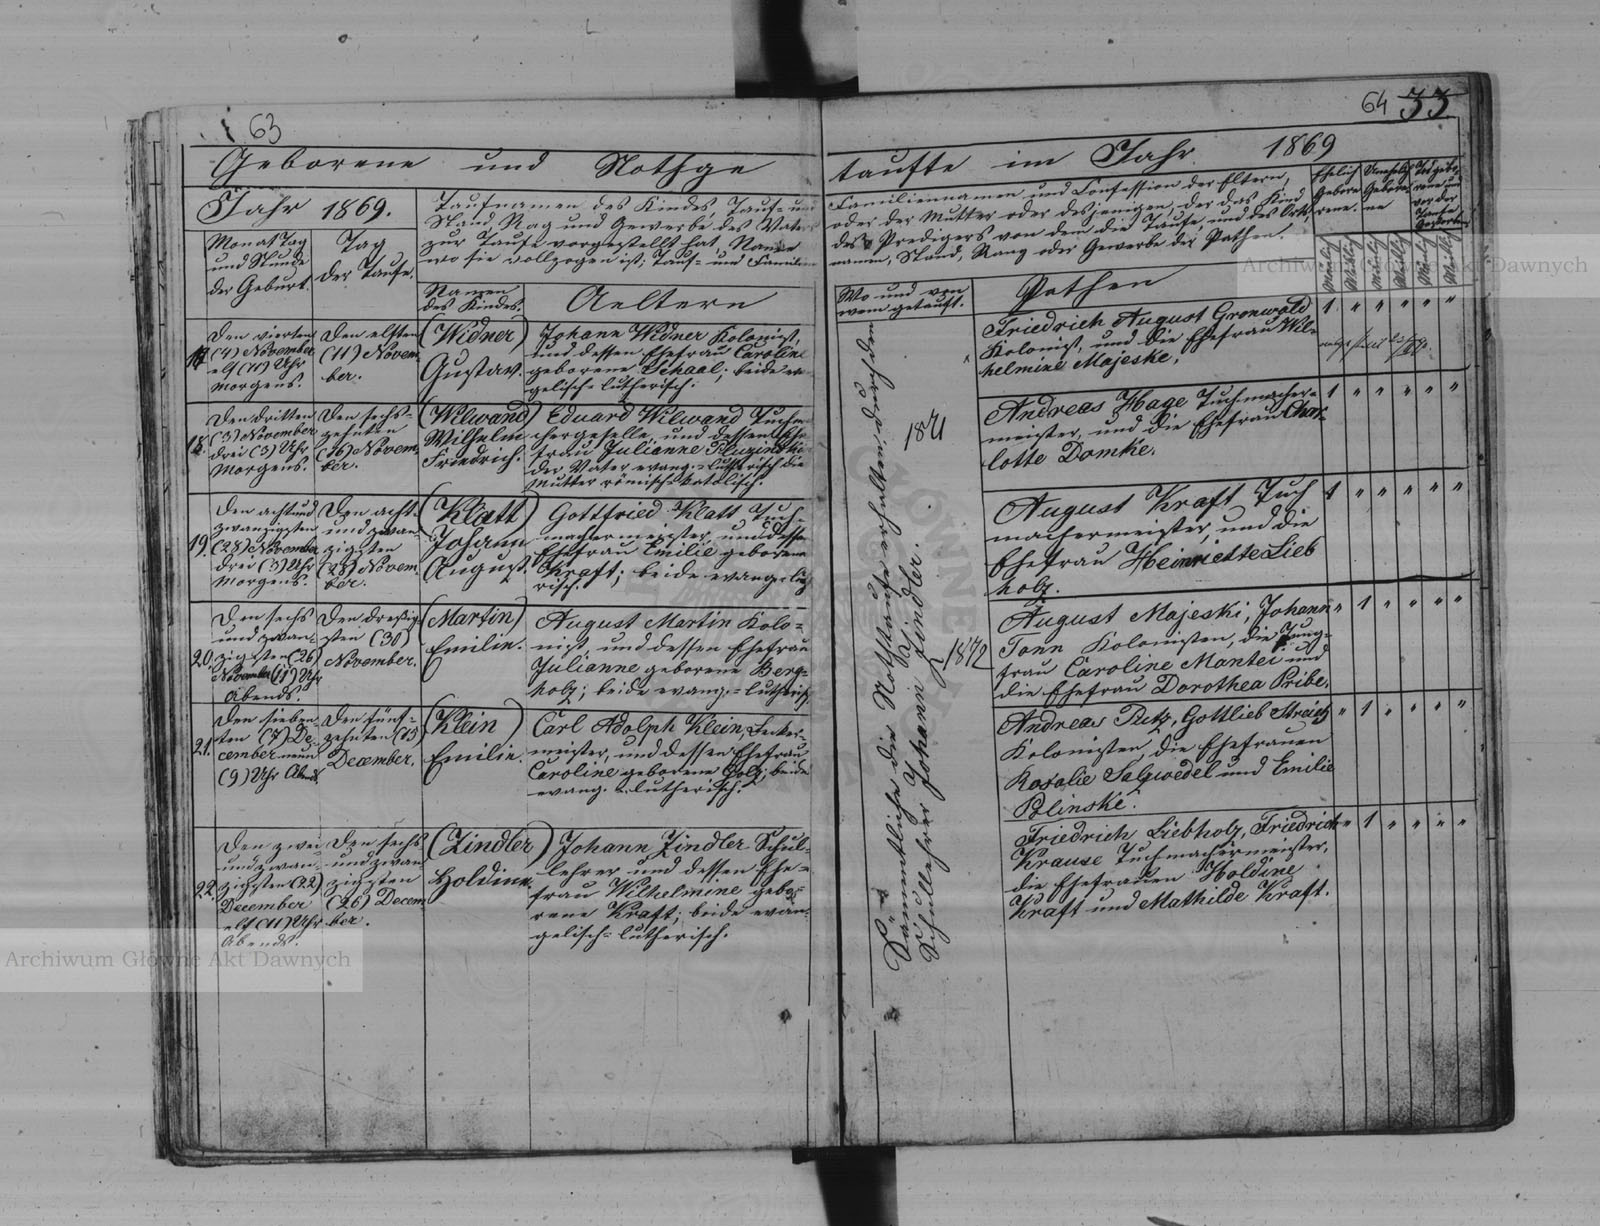 63
Geborene und Nothge
Jahr 1869.
Taufnamen des Kindes Tauf- und
Stand, Rag und Gewerbe des Vaters
zur Taufe vorgestellt hat, Name
wo sie vollzogen ist; Tauf- und Familien
Monat Tag
und Stunde
der Geburt
Tag
der Taufe.
Namen
des Kindes.
Aeltern
17.
Den vierten
(4) November
elf (11) Uhr
Morgens.
Den elften
(11) Novem-
ber.
(Widner)
Gustav.
Johann Widner Kolonist,
und dessen Ehefrau Caroline
geborene Schaal; beide ev-
gelisch-lutherisch.
18.
Den dritten
(3) November
drei (3) Uhr
Morgens.
Den sechs-
zehnten
(16) Novem-
ber.
(Wilwand)
Wilhelm
Friedrich.
Eduard Wilwand Tuchma-
chergeselle, und dessen Ehe-
frau Julianne
der Vater evang.-lutherisch die
Mutter römisch-katolisch.
19.
Den achtund
zwanzigsten
(28) November
drei (3) Uhr
Morgens.
Den acht-
und zwan-
zigsten
(28) Novem-
ber.
(Klatt)
Johann
August.
Gottfried Klatt Tuch-
machermeister, und dessen
Ehefrau Emilie geborene
Kraft; beide evang-luth
risch.
20.
Den sechs
und zwan-
zigsten (26)
November (11) Uhr
Abends.
Den dreßig-
sten (30)
November.
(Martin)
Emilie.
August Martin Kolo-
nist, und dessen Ehefrau
Julianne geborene Berg-
holz; beide evang.-lutherisch
21.
Den sieben-
ten (7) De-
cember neun
(9) Uhr Abends
Den fünf-
zehnten (15)
December.
(Klein)
Emilie.
Carl Adolph Klein,
meister, und dessen Ehefrau
Caroline geborene Golz; beide
evang.-lutherisch.
22.
Den zwei
und zwan-
zigsten (22)
December
elf (11) Uhr
Abends.
Den sechs
und zwan
zigsten
(26) Decem-
ber.
(Zindler)
Holdine.
Johann Zindler Schul-
lehrer und dessen Ehe-
frau Wilhelmine gebo-
rene Kraft; beide evan-
gelisch-lutherisch.
64 33
taufte im Jahr 1869
Familiennamen und Confession der Eltern,
oder der Mutter oder desjenigen, der das Kind
des Predigers von dem die Taufe, und des Orts,
namen, Stand, Rang oder Gewerbe der Pathen.
Ehelich
Gebore
rene.
Unehelich
Gebore
ne
Todgebo-
rene und
vor der
Taufe
Gestorben
Wo und von
wem getauft.
Pathen
Mänlich
Weiblich
Mänlich
Weiblich
Mänlich
Weiblich
Sämmtliche die Nothtaufe erhalten, durch den
Schullehrer Johann Zindler.
Friedrich August Gronwold
Kolonist, und die Ehefrau Wil-
helmine Majeske.
1 " " " " "
1871
Andreas Hage Tuchmacher-
meister, und die Ehefrau Char-
lotte Domke.
1 " " " " "
August Kraft Tuch
machermeister, und die
Ehefrau Heinriette Lieb
holz.
1 " " " " "
1872
August Majeski, Johann
Tonn Kolonisten, die Jung-
frau Caroline Mantei und
die Ehefrau Dorothea Pribe.
" 1 " " " "
Andreas Retz, Gottlieb Streich
Kolonisten, die Ehefrauen
Rosalie Salzwedel und Emilie
Polinske.
" 1 " " " "
Friedrich Liebholz, Friedrich
Krause Tuchmachermeister,
die Ehefrauen Holdine
Kraft und Mathilde Kraft.
" 1 " " " "
Archiwum Główne Akt Dawnych
Archiwum Główne Akt Dawnych